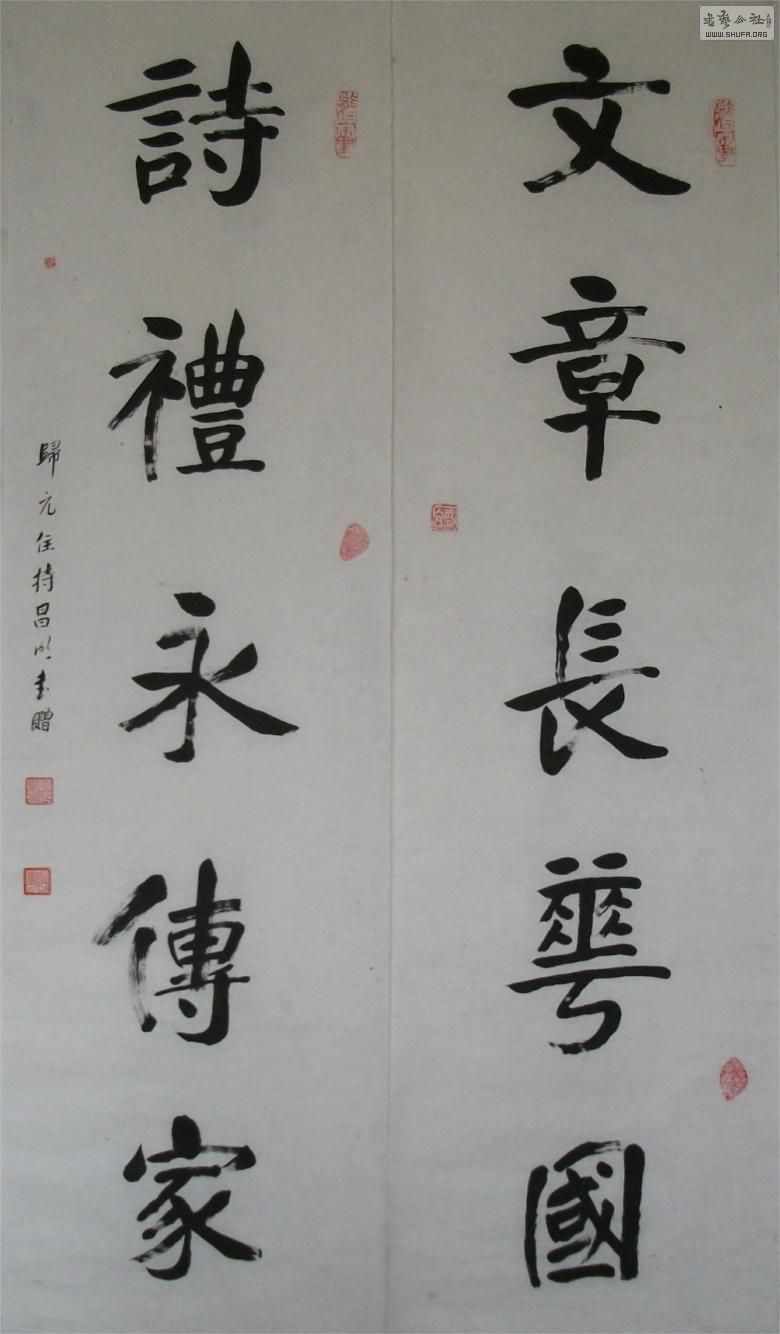 文章長華國
詩禮永傳家
歸元住持昌明書贈
WWW.SHUFA.ORG